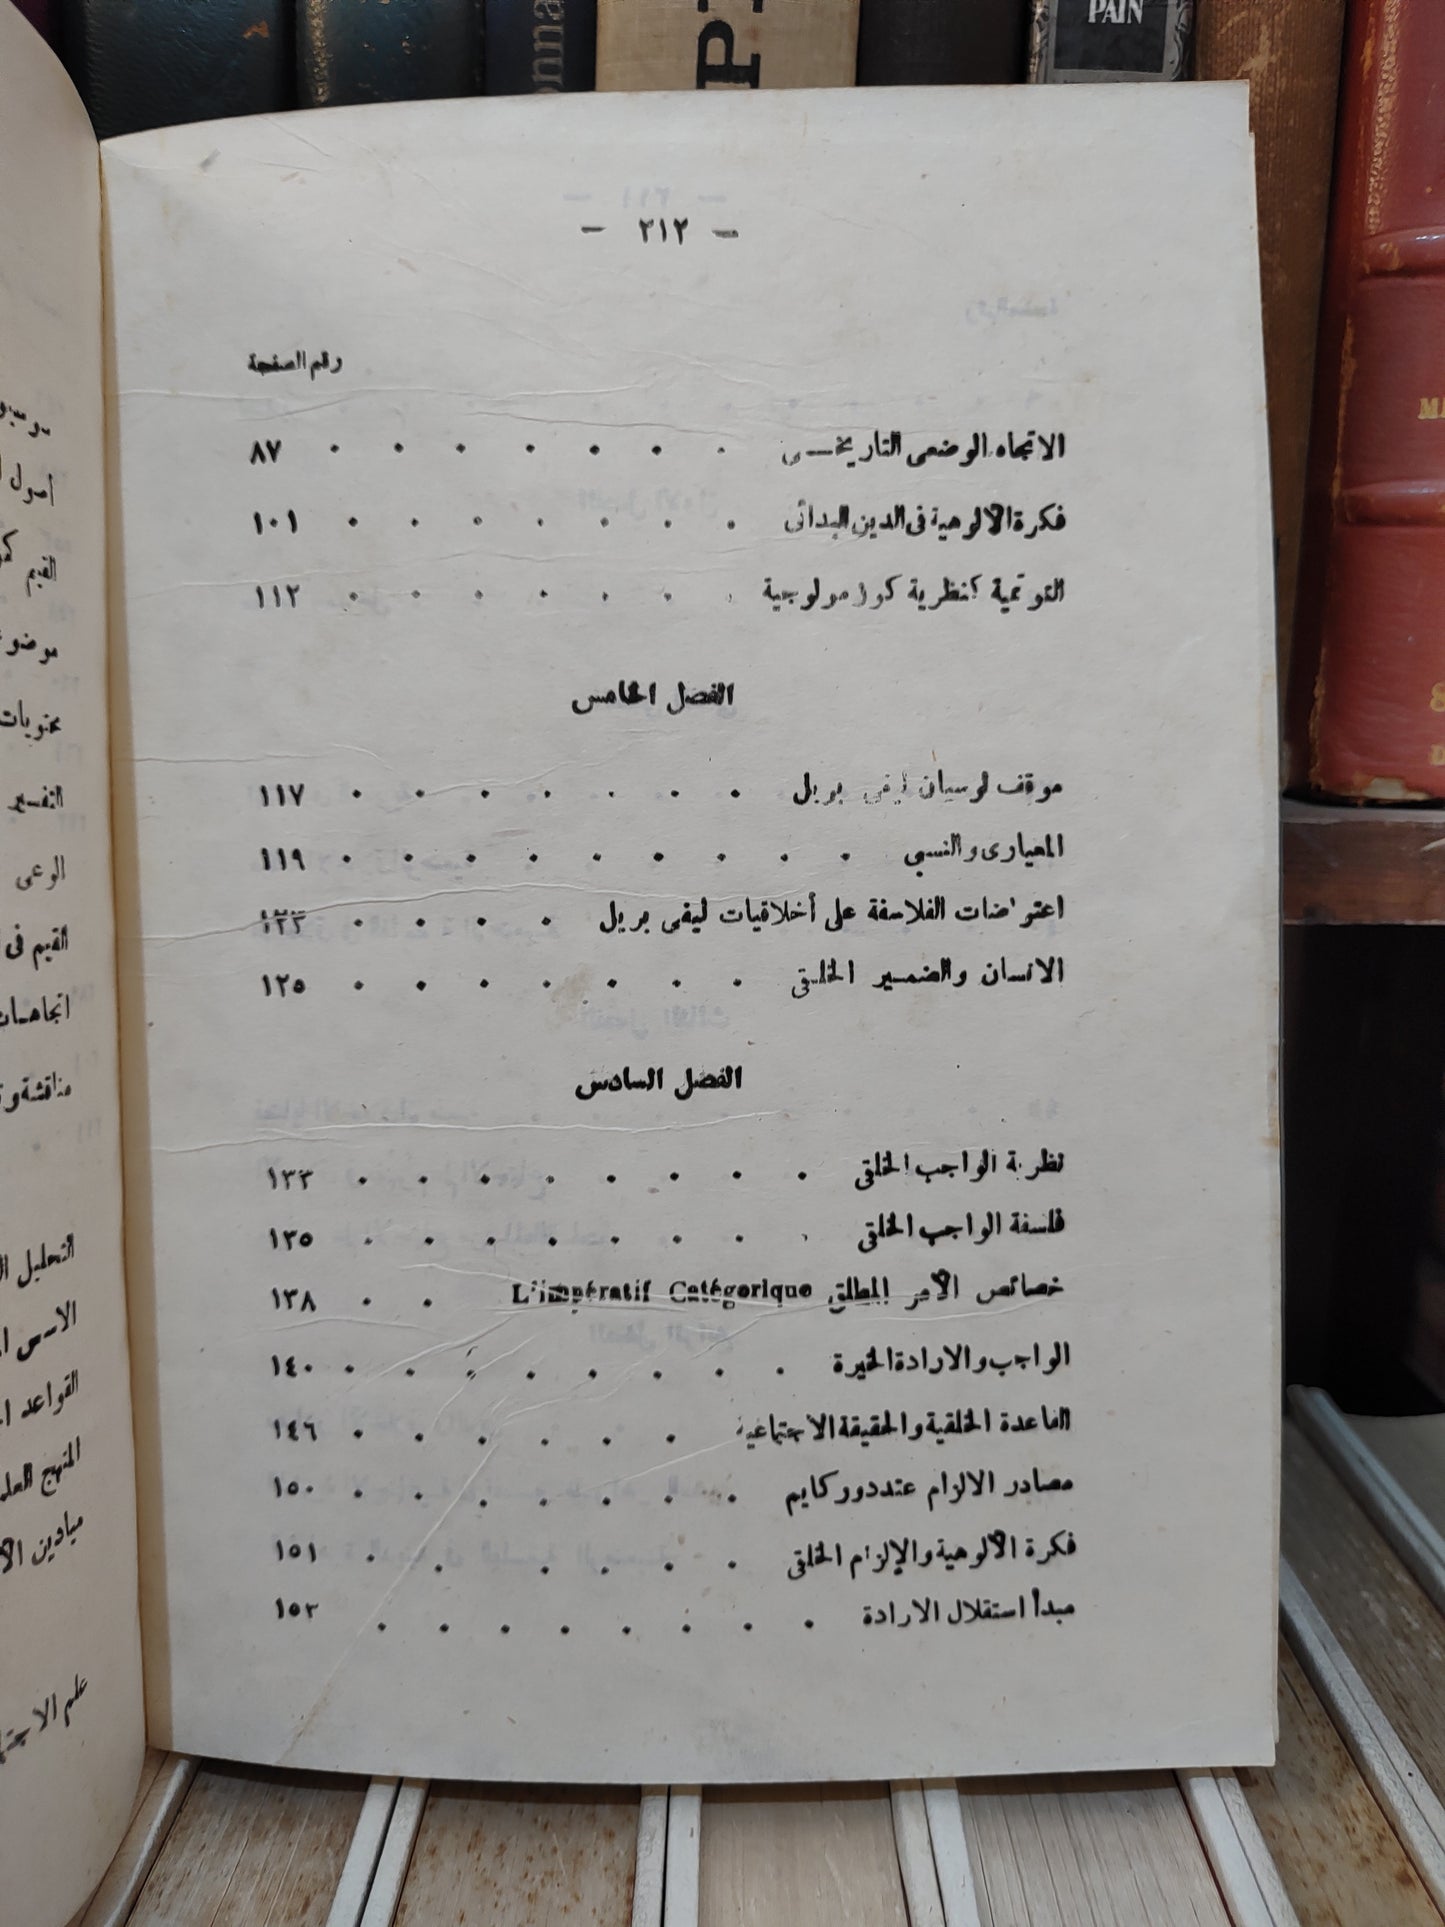 PAIN
— ٢١٢ —
رقم الصفحة
الاتجاه الوضعى التاريخـــى . . . . . . . ٨٧
فكرة الألوهية فى الدين البدائى . . . . . . . ١٠١
التوتمية كنظرية كوزمولوجية . . . . . . . ١١٢
الفصل الخامس
موقف لوسيان ليفى بريل . . . . . . . ١١٧
المعيارى والنسبى . . . . . . . . . ١١٩
اعتراضات الفلاسفة على أخلاقيات ليفى بريل . . . . ١٢٣
الانسان والضمير الخلقى . . . . . . . ١٢٥
الفصل السادس
نظرية الواجب الخلقى . . . . . . . . ١٣٣
فلسفة الواجب الخلقى . . . . . . . . ١٣٥
خصائص الأمر المطلق L'impératif Catégorique . . ١٣٨
الواجب والارادة الخيرة . . . . . . . . ١٤٠
القاعدة الخلقية والحقيقة الاجتماعية . . . . . . ١٤٦
مصادر الالزام عند دور كايم . . . . . . . ١٥٠
فكرة الألوهية والإلزام الخلقى . . . . . . ١٥١
مبدأ استقلال الارادة . . . . . . . . ١٥٣
أصول
القيم
محتويات
التفسير
الوعى
القيم فى
مناقشة و
التحليل
القواعد
المنهج
ميادين